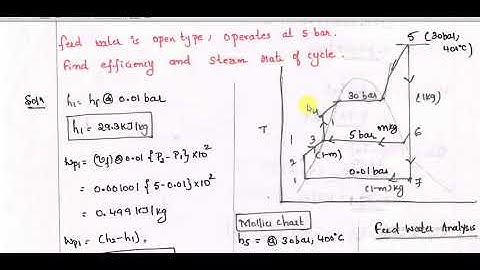 feed water is open type, operates at 5 bar.
find efficiency and steam rate of cycle.
Soln
h1 = hf @ 0.01 bar
h1 = 29.3 KJ/kg
Wp1 = (Vf)@0.01 {P2-P1}×10²
= 0.001001 {5-0.01}×10²
= 0.499 KJ/kg
Wp1 = (h2-h1).
T
5 (30bar, 400°C)
30 bar
(1kg)
4
1
3
5 bar
mkg
6
2
(1-m)
0.01 bar
1
7
(1-m)kg
Mollier chart
h5 = @ 30bar, 400°C
Feed Water Analysis